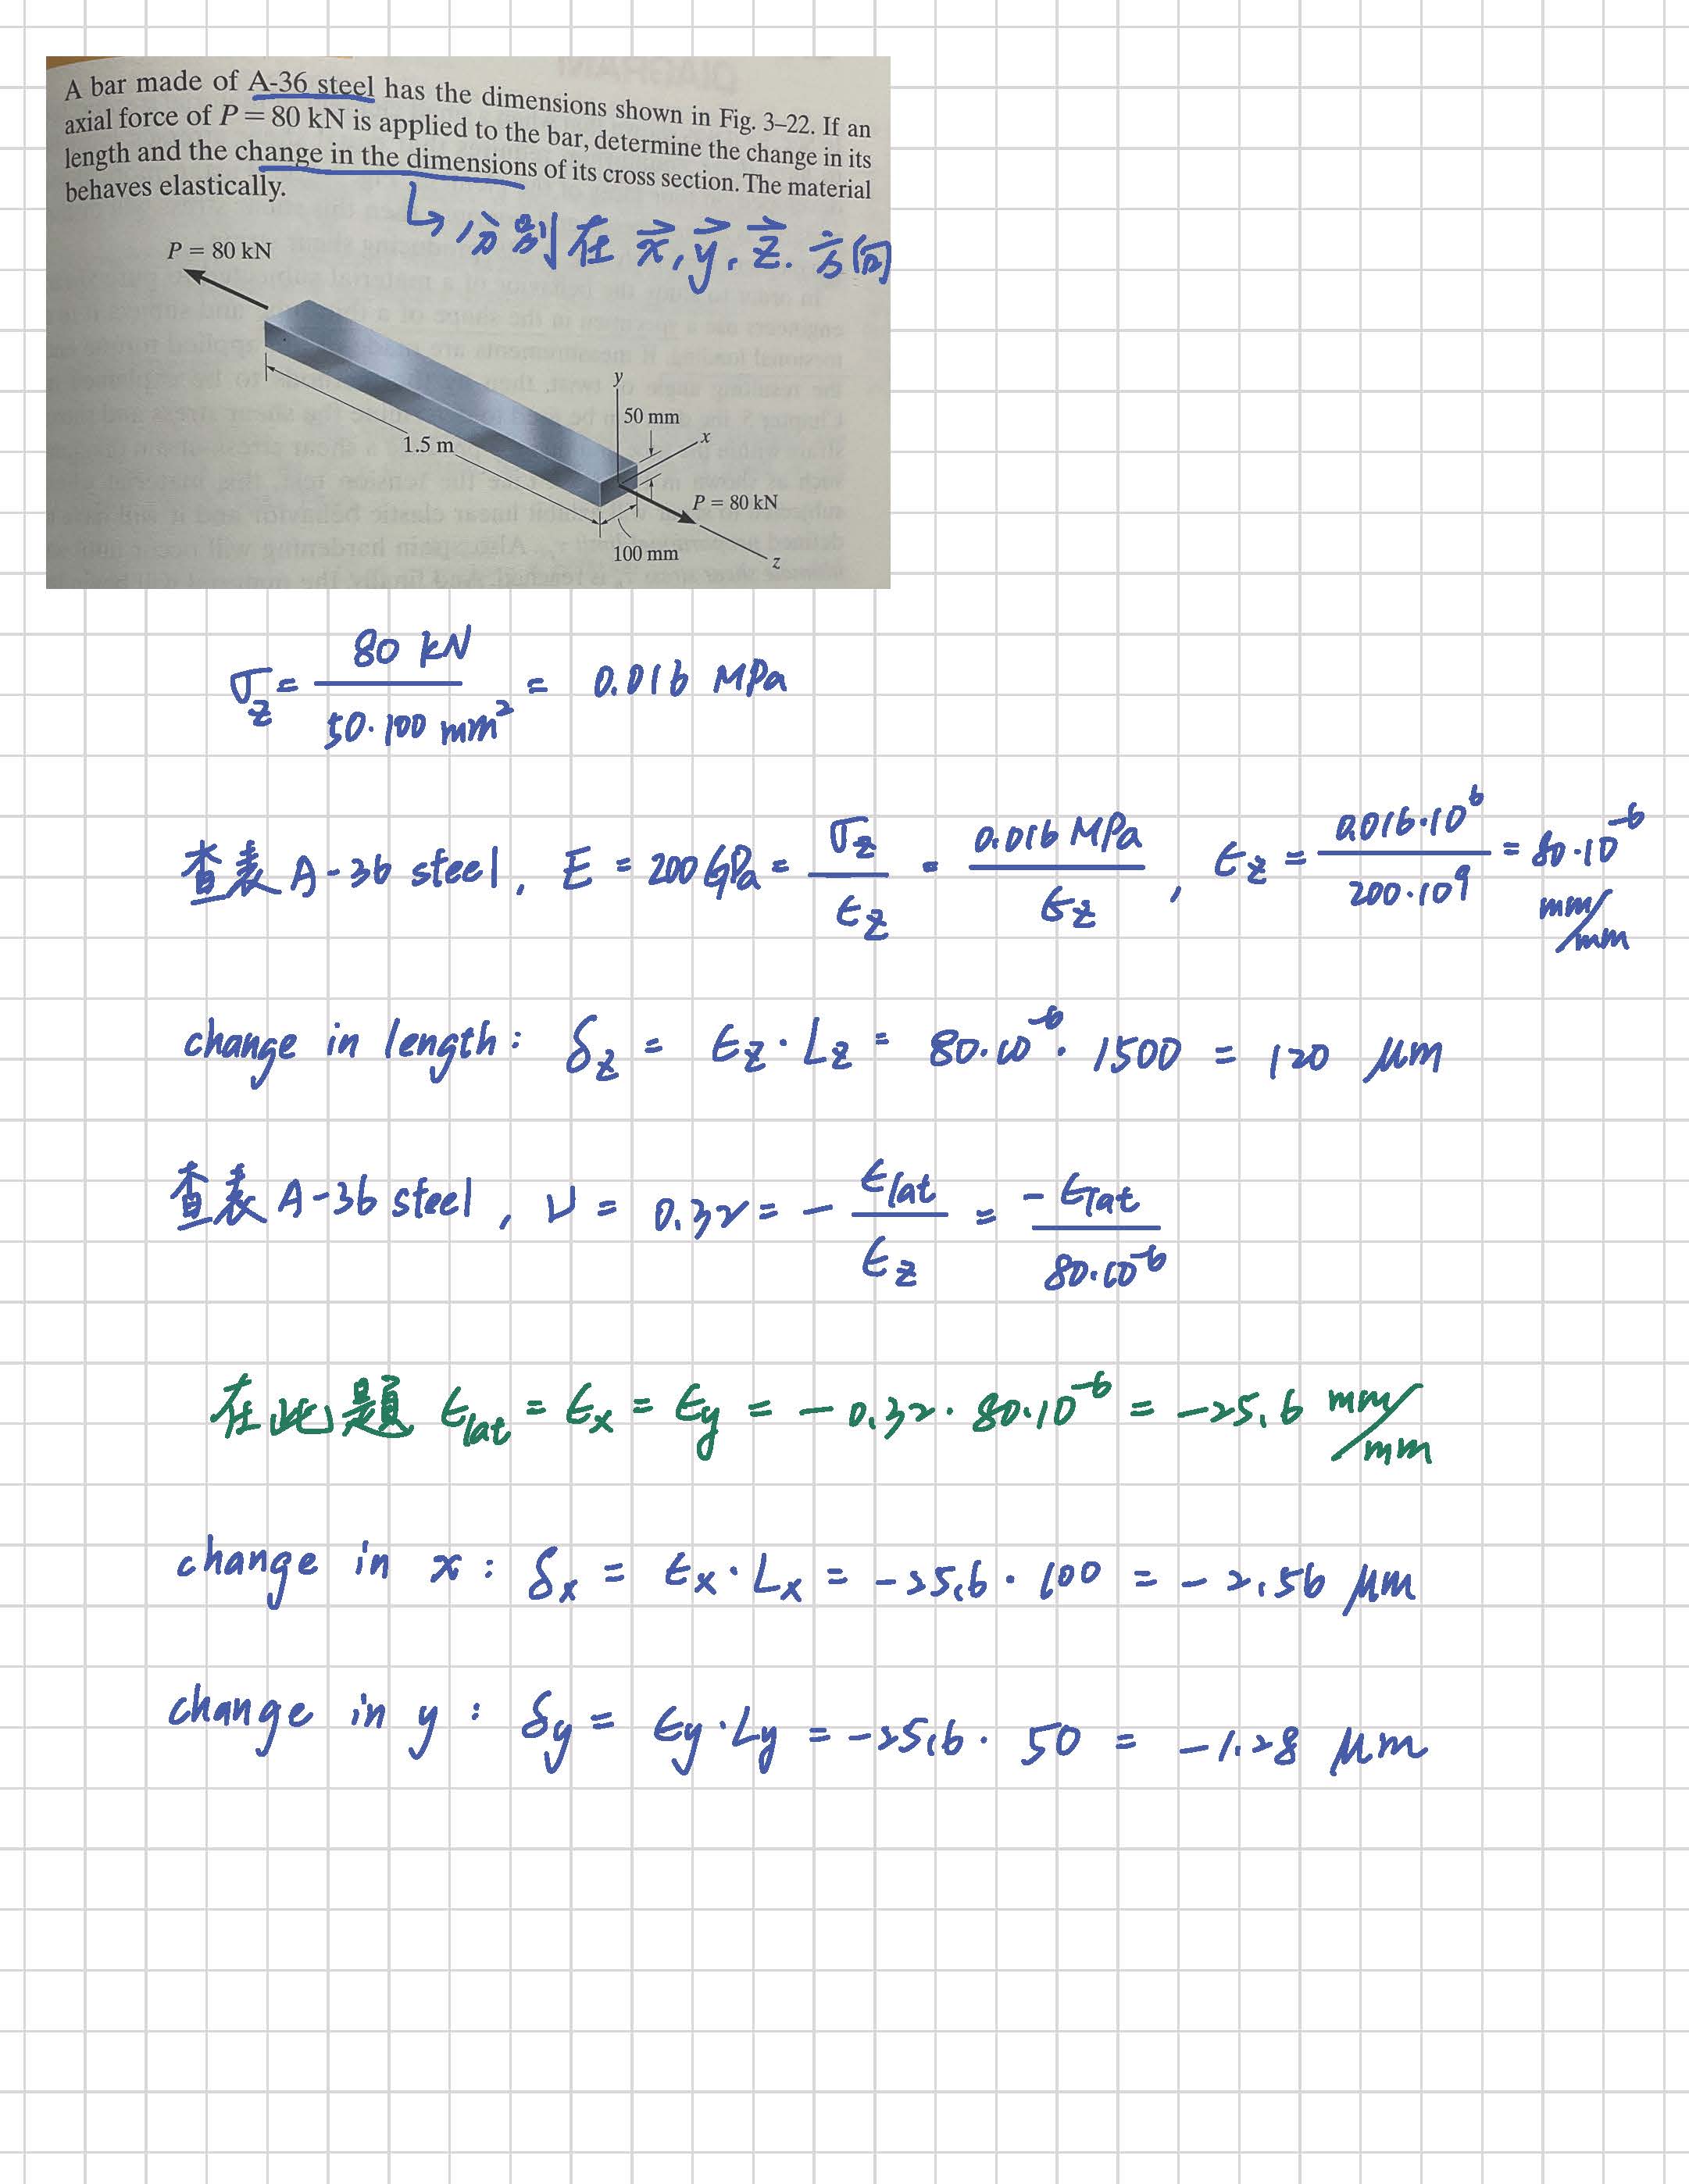 A bar made of A-36 steel has the dimensions shown in Fig. 3–22. If an
axial force of P = 80 kN is applied to the bar, determine the change in its
length and the change in the dimensions of its cross section. The material
behaves elastically.
↳ 分別在 x⃗, y⃗, z⃗. 方向
P = 80 kN
y
50 mm
x
1.5 m
P = 80 kN
100 mm
z
σz = 80 kN / 50·100 mm² = 0.016 MPa
查表 A-36 steel, E = 200 GPa = σz / εz = 0.016 MPa / εz , εz = 0.016·10⁶ / 200·10⁹ = 80·10⁻⁶ mm/mm
change in length: δz = εz · Lz = 80·10⁻⁶ · 1500 = 120 μm
查表 A-36 steel, ν = 0.32 = - εlat / εz = - εlat / 80·10⁻⁶
在此題 εlat = εx = εy = - 0.32 · 80·10⁻⁶ = -25.6 mm/mm
change in x : δx = εx · Lx = -25.6 · 100 = - 2.56 μm
change in y : δy = εy · Ly = -25.6 · 50 = -1.28 μm